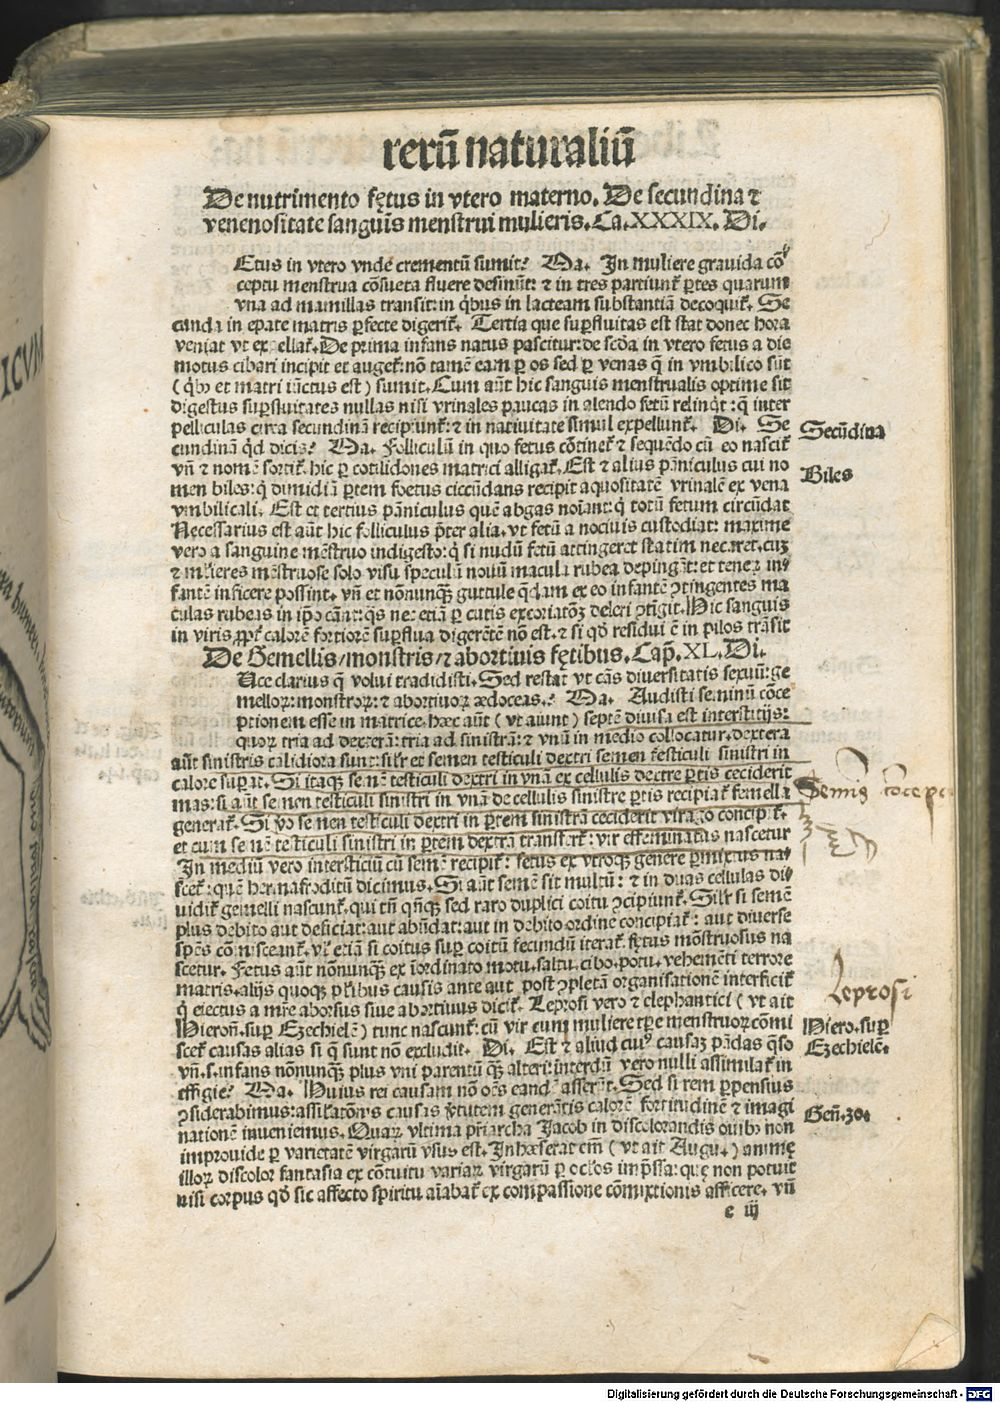 rerū naturaliū
De nutrimento fętus in vtero materno. De secundina ⁊
venenositate sanguīs menstrui mulieris. Ca. XXXIX. Di.
Etus in vtero vnde crementū sumit? Ma. In muliere grauida cō
ceptu menstrua cōsueta fluere desinūt: ⁊ in tres partiunt᷑ ꝑtes quarum
vna ad mamillas transit: in q̇bus in lacteam substantiā decoquit᷑. Se
cunda in epate matris ꝑfecte digerit᷑. Tertia que suꝑfluitas est stat donec hora
veniat vt expellat᷑. De prima infans natus pascitur: de scd̄a in vtero fetus a die
motus cibari incipit et auget᷑: nō tamē eam ꝑ os sed ꝑ venas q̄ in vmbilico sūt
(q̇bꝰ et matri iūctus est) sumit. Cum aūt hic sanguis menstrualis optime sit
digestus suꝑfluitates nullas nisi vrinales paucas in alendo fetū relinq̇t: q̄ inter
pelliculas circa secundinā recipiunt᷑: ⁊ in natiuitate simul expellunt᷑. Di. Se
cundinā q̇d dicis? Ma. Folliculū in quo fetus cōtinet᷑ ⁊ sequēdo cū eo nascit᷑
vn̄ ⁊ nomē sortit᷑. hic ꝑ cotilidones matrici alligat᷑. Est ⁊ alius pāniculus cui no
men biles: q̇ dimidiā ꝑtem foetus circūdans recipit aquositatē vrinalē ex vena
vmbilicali. Est et tertius pāniculus quē abgas noīant: q̇ totū fetum circūdat
Necessarius est aūt hic folliculus p̄ter alia. vt fetū a nociuis custodiat: maxime
vero a sanguine mēstruo indigesto: q̇ si nudū fetū attingeret statim necaret. cuꝫ
⁊ mlieres mēstruose solo visu speculū nouū macula rubea depingāt: et tenerū in
fantē inficere possint. vn̄ et nōnunqū guttule q̄dam ex eo infantē ↄtingentes ma
culas rubeas in ip̄o cāūt: q̄s nec etiā ꝑ cutis excoriatōꝫ deleri ↄtīgit. Hic sanguis
in viris ꝓpt᷑ calorē fortiorē suꝑflua digerētē nō est. ⁊ si qd̄ residui ē in pilos trāsit
De Gemellis/monstris/⁊ abortiuis fętibus. Cap̄. XL. Di.
Uce clarius q̄ volui tradidisti. Sed restat vt cās diuersitatis sexuū: ge
melloꝝ: monstroꝝ: ⁊ abortiuoꝝ ædoceas. Ma. Audisti seminū cōce
ptionem esse in matrice. hæc aūt (vt aiunt) septē diuisa est interstitijs:
quoꝝ tria ad dexterā: tria ad sinistrā: ⁊ vnū in medio collocatur. dextera
aūt sinistris calidiora sunt: sil'r et semen testiculi dextri semen testiculi sinistri in
calore suꝑat. Si itaqꝫ semē testiculi dextri in vnā ex cellulis dextre ꝑtis ceciderit
mas: si aūt semen testiculi sinistri in vnā de cellulis sinistre ꝑtis recipiat᷑ femella
generat᷑. Si v̊o semen testiculi dextri in ꝑtem sinistrā ceciderit virago concipit᷑.
et cum semē testiculi sinistri in ꝑtem dextrā transfert᷑: vir effeminatus nascetur
In mediū vero intersticiū cū semē recipit᷑: fetus ex vtroqꝫ genere ꝑmixtus na
scet᷑: quē hermafroditū dicimus. Si aūt semē sit multū: ⁊ in duas cellulas di
uidit᷑ gemelli nascunt᷑. qui tn̄ qn̄qꝫ sed raro duplici coitu ↄcipiunt᷑. Sil'r si semē
plus debito aut deficiat: aut abūdat: aut in debito ordine concipiat᷑: aut diuerse
spēs cōmisceant᷑. vl' etiā si coitus suꝑ coitū fecundū iterat᷑. fętus mōstruosus na
scetur. Fetus aūt nōnunqꝫ ex īordinato motu. saltu. cibo. potu. vehemēti terrore
matris. alijs quoqꝫ pl'ibus causis ante aut post ↄpletā organisationē interficit᷑
q̇ eiectus a mr̄e aborsus siue abortiuus dicit᷑. Leprosi vero ⁊ elephantici (vt ait
Hieroñ. suꝑ Ezechielē) tunc nascunt᷑: cū vir cum muliere tꝑe menstruoꝝ cōmi
scet᷑ causas alias si q̄ sunt nō excludit. Di. Est ⁊ aliud cuiꝰ causaꝫ pādas q̄so
vn̄. s. infans nōnunqꝫ plus vni parentū qꝫ alteri: interdū vero nulli assimilat᷑ in
effigie? Ma. Huius rei causam nō oēs eandē asserūt. Sed si rem ꝑpensius
ↄsiderabimus: assil'atōnis causas v̓tutem generātis calorē fortitudinē ⁊ imagi
nationē inueniemus. Quaꝝ vltima p̄riarcha Jacob in discolorandis ouibꝰ non
improuide ꝑ varietatē virgarū vsus est. Inhæserat em̄ (vt ait Augu.) animę
illoꝝ discolor fantasia ex cōtuitu variaꝝ virgarū ꝑ oc'los imp̄ssa: quę non potuit
nisi corpus qd̄ sic affecto spiritu aīabat᷑ ex compassione cōmixtionis afficere. vn̄
e iij
Secūdina
Biles
Leprosi
Hiero. suꝑ
Ezechielē.
Geñ. 30.
ICVM
Digitalisierung gefördert durch die Deutsche Forschungsgemeinschaft - DFG